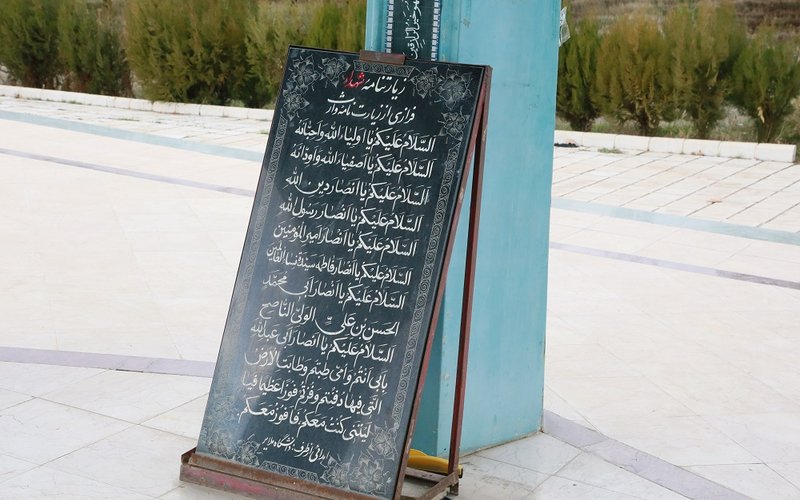 زیارتنامه شهدا
فرازی از زیارت نامه وارث
السَّلامُ عَلَیکُم یا اَولیاءَ اللهِ وَ اَحِبّائَهُ
السَّلامُ عَلَیکُم یا اَصفیاءَ اللهِ وَ اَوِدّائَهُ
السَّلامُ عَلَیکُم یا اَنصارَ دینِ اللهِ
السَّلامُ عَلَیکُم یا اَنصارَ رَسولِ اللهِ
السَّلامُ عَلَیکُم یا اَنصارَ اَمیرِ المُؤمِنینَ
السَّلامُ عَلَیکُم یا اَنصارَ فاطِمَه سَیِّدَةِ نِساءِ العالَمینَ
السَّلامُ عَلَیکُم یا اَنصارَ اَبی مُحَمَّدٍ
الحَسَنِ بنِ عَلیٍّ الوَلیِّ النّاصِحِ
السَّلامُ عَلَیکُم یا اَنصارَ اَبی عَبدِ اللهِ
بِاَبی اَنتُم وَ اُمّی طِبتُم وَ طابَتِ الاَرضُ
الَّتی فیها دُفِنتُم وَ فُزتُم فَوزاً عَظیماً فَیا
لَیتَنی کُنتُ مَعَکُم فَاَفُوزَ مَعَکُم
اهدائی از طرف: دانشگاه ملایر